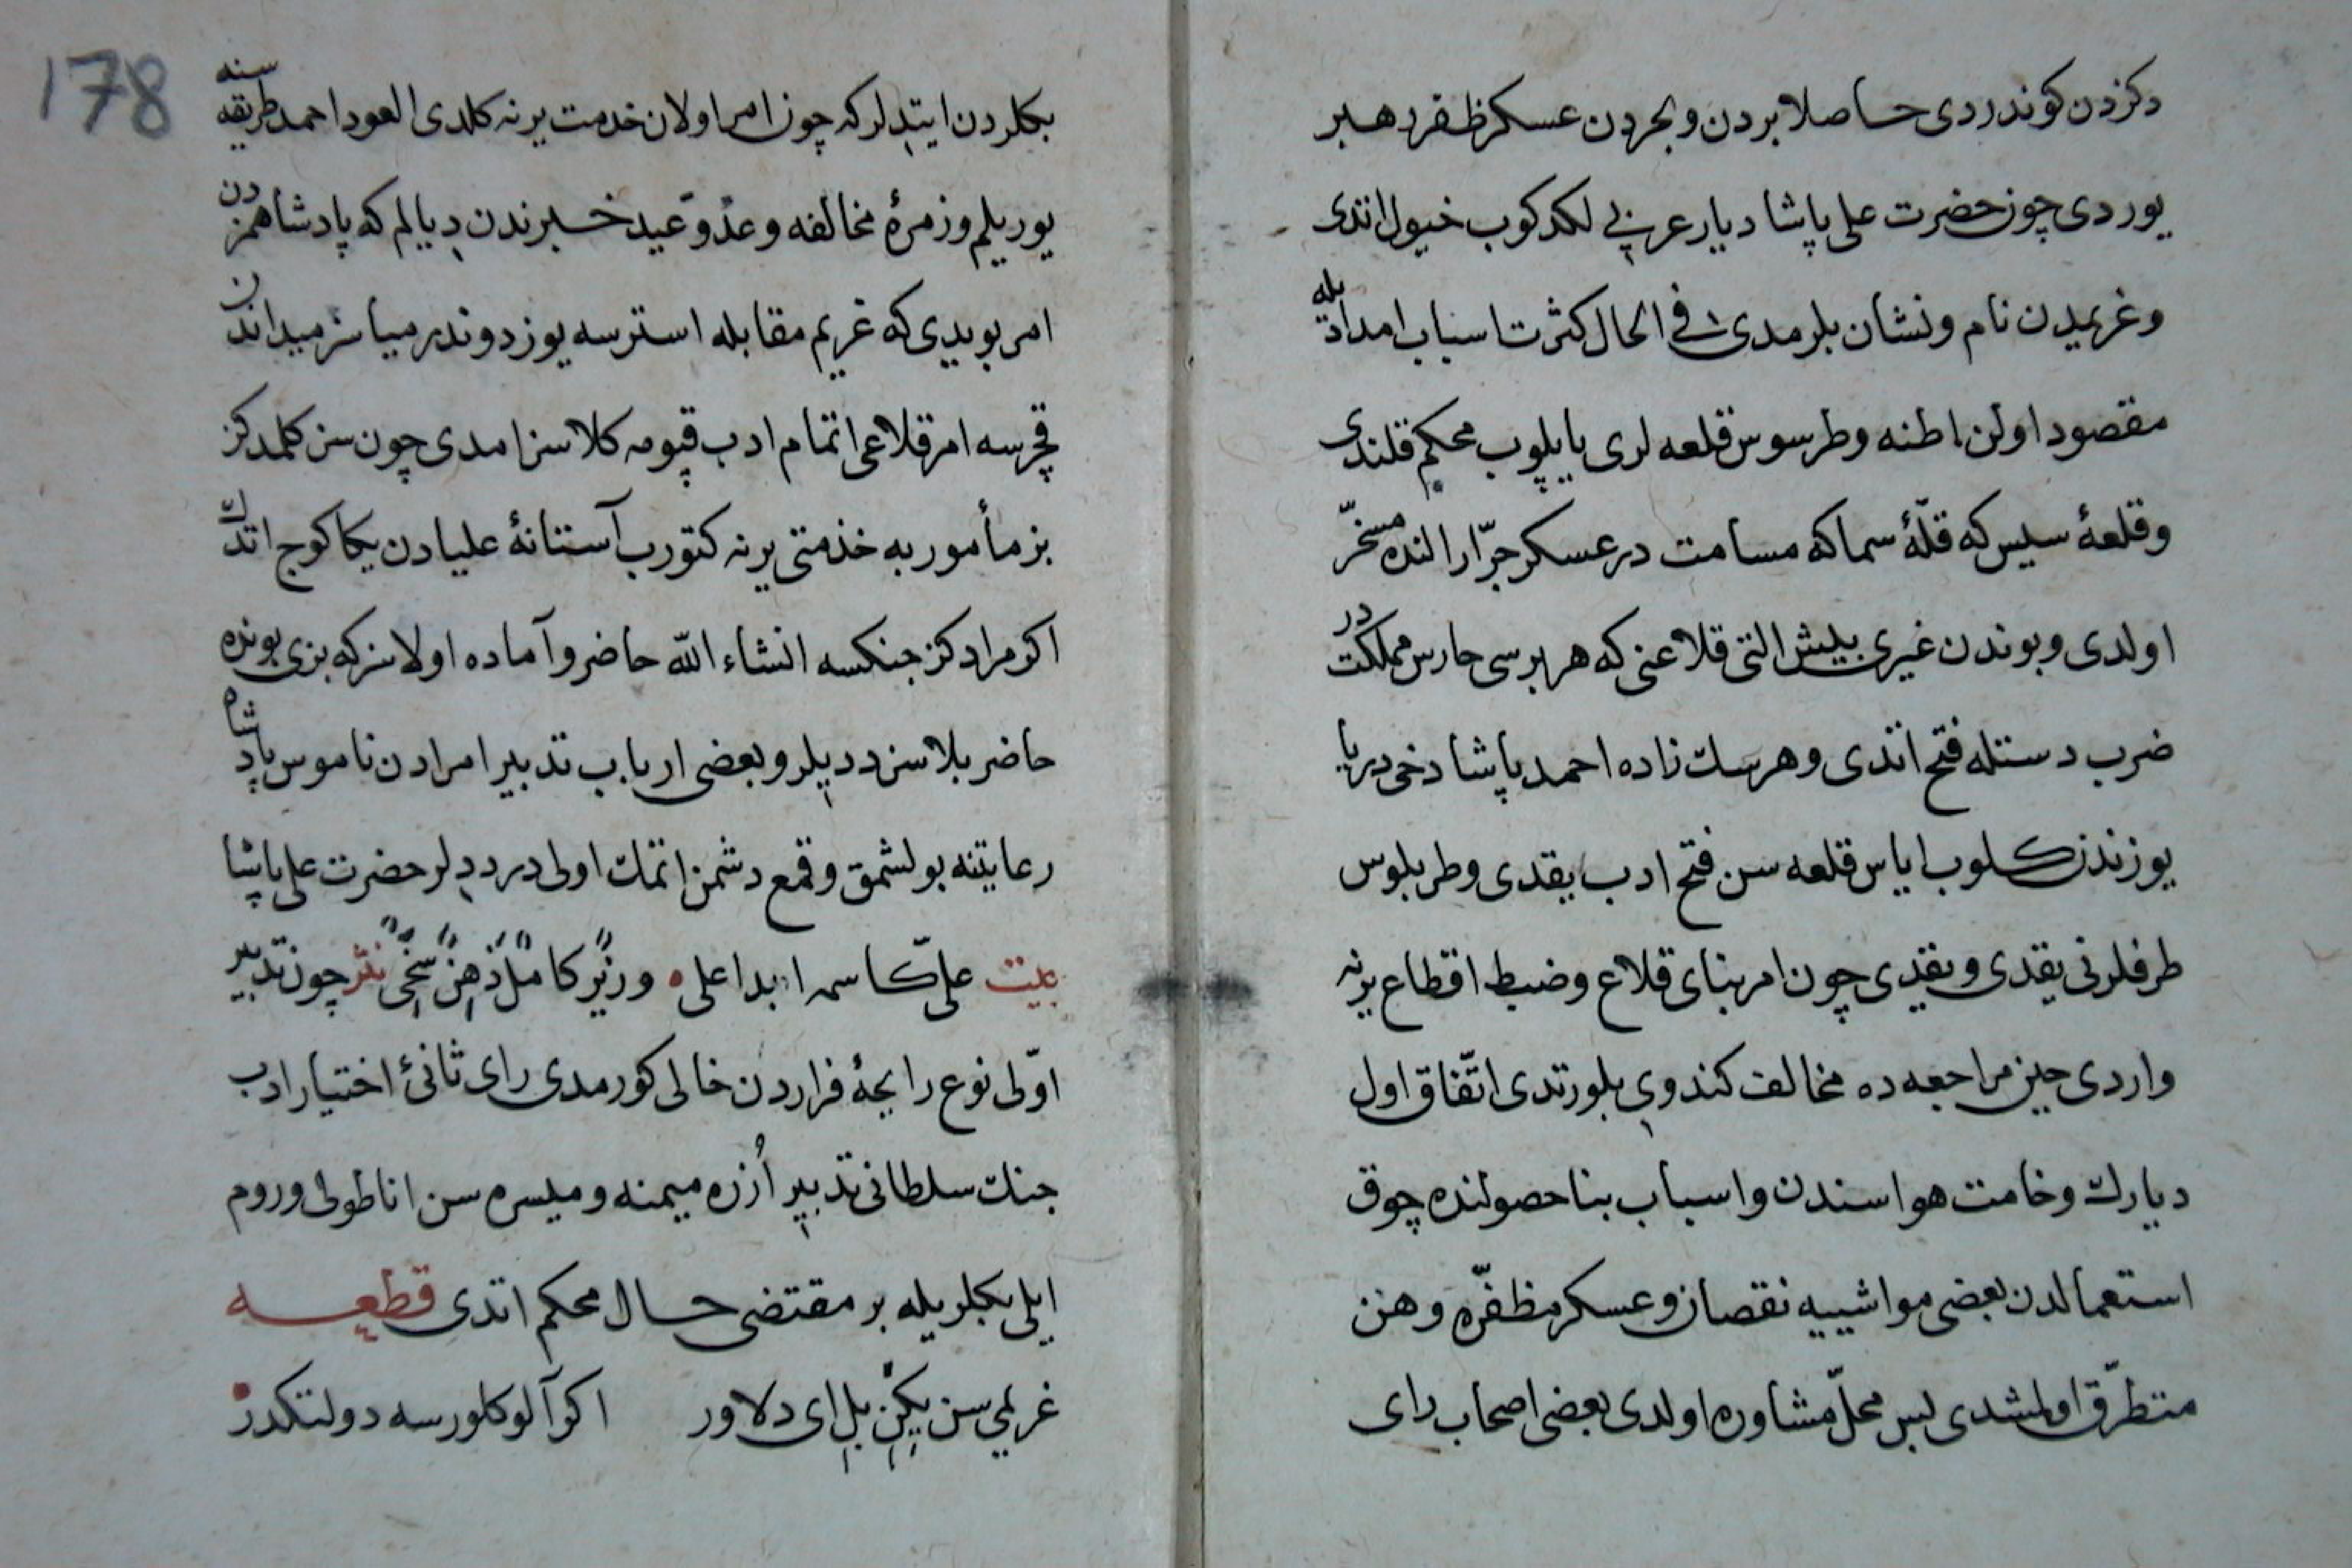 دكزدن كوندردى حاصلا بردن و بحردن عسكر ظفر رهبر
يوردى چون حضرت على پاشا ديار عربى لكدكوب خيول اتدى
و غريمدن نام و نشان بلرمدى فى الحال كثرت اسباب امداد يله
مقصود اولن اطنه و طرسوس قلعه لرى يا پلوب محكم قلندى
و قلعۀ سيس كه قلّۀ سما كه مسامت در عسكر جرّار النده مسخّر
اولدى و بوندن غيرى بيش التى قلاعنى كه هر برسى حارس مملكت در
ضرب دستله فتح اتدى و هرسك زاده احمد پاشا دخى دريا
يوزندن كلوب اياس قلعه سن فتح ادب يقدى و طربلوس
طرفلرنى يقدى و يقدى چون امر بناى قلاع و ضبط اقطاع يرنه
واردى حين مراجعه ده مخالف كندوى بلورتدى اتّفاق اول
ديارك وخامت هواسندن و اسباب بنا حصولنده چوق
استعمالدن بعضى مواشييه نقصان و عسكر مظفّره وهن
متطرّق اولمشدى پس محلّ مشاوره اولدى بعضى اصحاب راى
178
بكلردن ايتديلر كه چون امر اولان خدمت يرنه كلدى العود احمد طريقه سنه
يوريلم و زمرۀ مخالفه و عدّو عيد خبرندن ديالم كه پادشاهمزدن
امر بويدى كه غريم مقابله استرسه يوز دوندرمياسز ميداندن
قچرسه امر قلاعى اتمام ادب قپومه كلاسز امدى چون سز كلمدكز
بز مأمور به خذمتى يرنه كتورب آستانۀ عليادن يكا كوچ اتدك
اكر مرادكز جنكسه انشاء الله حاضر و آماده اولاسز كه بزى بونده
حاضر بلاسز ديديلر و بعضى ارباب تدبير امرادن ناموس پادشاه
رعايتنه بولشمق و قمع دشمن اتمك اولى در ديدلر حضرت على پاشا
بيت علىّ كاسمه ابدا على ه وزيرٌ كاملٌ ذهنٌ سخىٌ نثر چون تدبير
اوّلى نوع رايحۀ فراردن خالى كورمدى راى ثانئ اختيار ادب
جنك سلطانى تدبير اُزره ميمنه و ميسره سن اناطولى و روم
ايلى بكلريله بر مقتضى حال محكم اتدى قطعه
غريمى سن يكن بل اى دلاور اكر آلو كلورسه دولتكدر